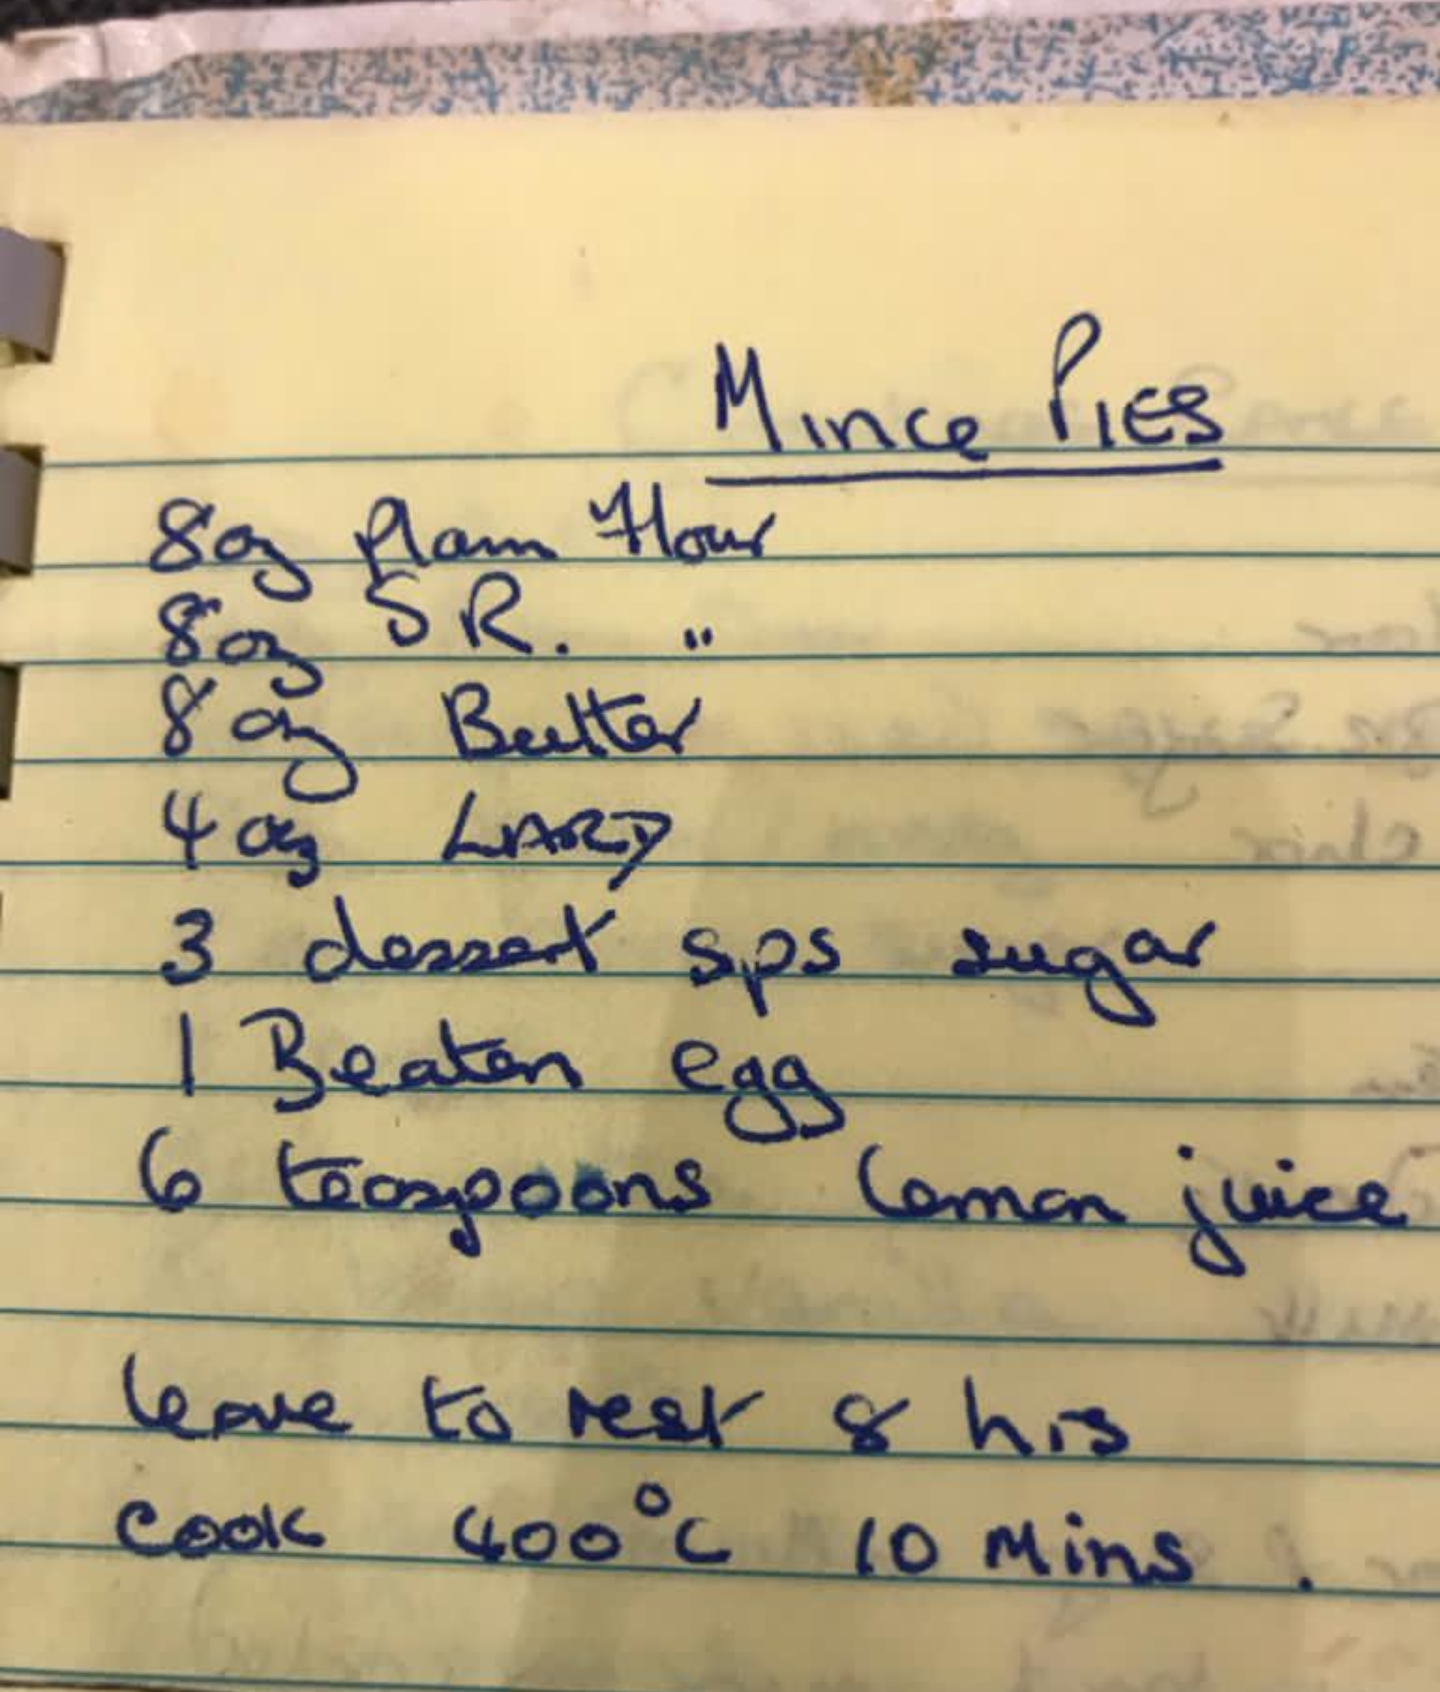 Mince PIES
8oz plain Flour
8oz SR. "
8oz Butter
4oz LARD
3 dessert sps sugar
1 Beaten egg
6 teaspoons lemon juice
leave to rest 8 hrs
cook 400°C 10 Mins.